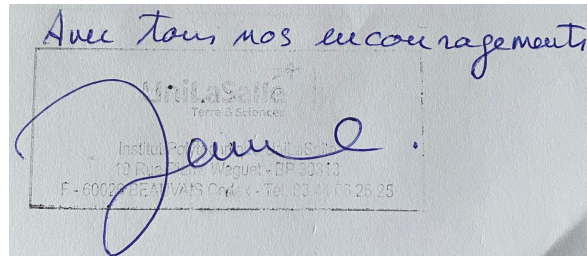 Avec tous nos encouragements
UniLaSalle
Terre & Sciences
Institut Polytechnique UniLaSalle
19 Rue Pierre Waguet - BP 30313
F - 60026 BEAUVAIS Cedex - Tél. 03 44 06 25 25